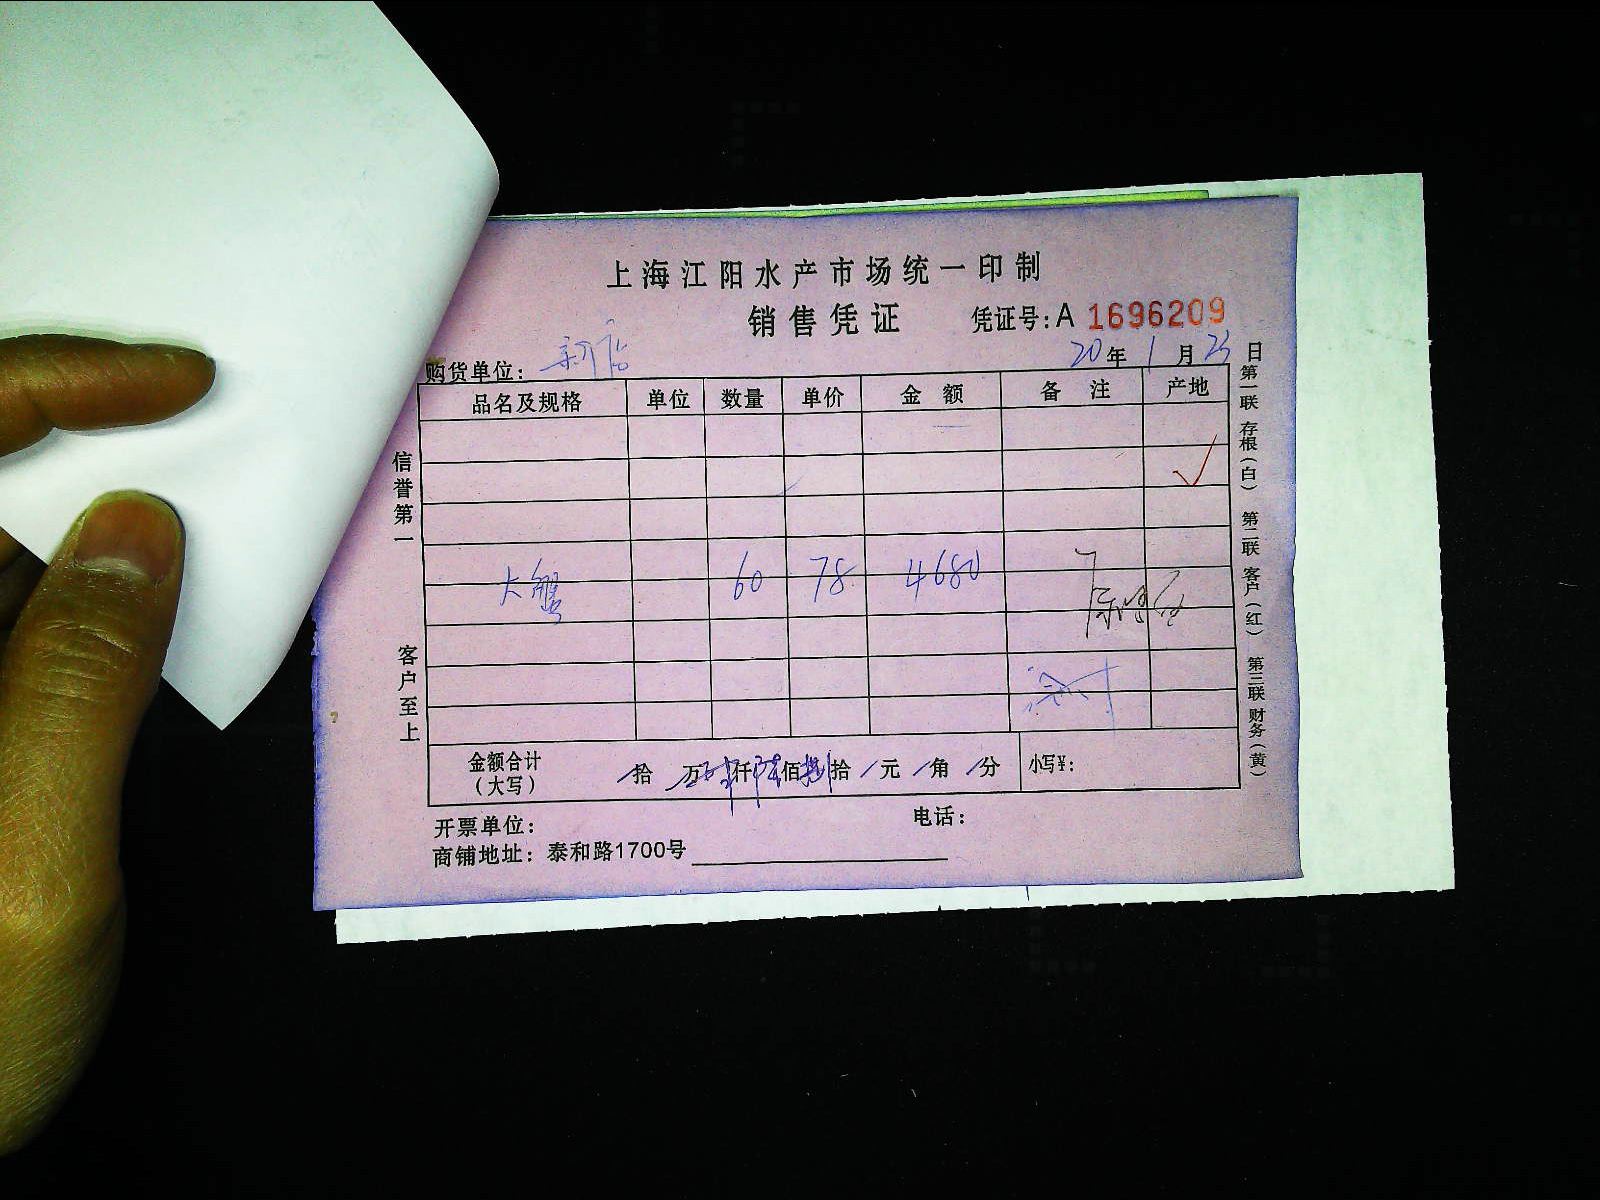 上海江阳水产市场统一印制
销售凭证 凭证号:A 1696209
购货单位: 新店 20年1月23日
品名及规格 单位 数量 单价 金额 备注 产地
大蟹 60 78 4680
金额合计(大写) 拾 万肆仟陆佰捌拾 元 角 分 小写¥:
开票单位: 电话:
商铺地址: 泰和路1700号
信誉第一 客户至上
第一联 存根(白) 第二联 客户(红) 第三联 财务(黄)